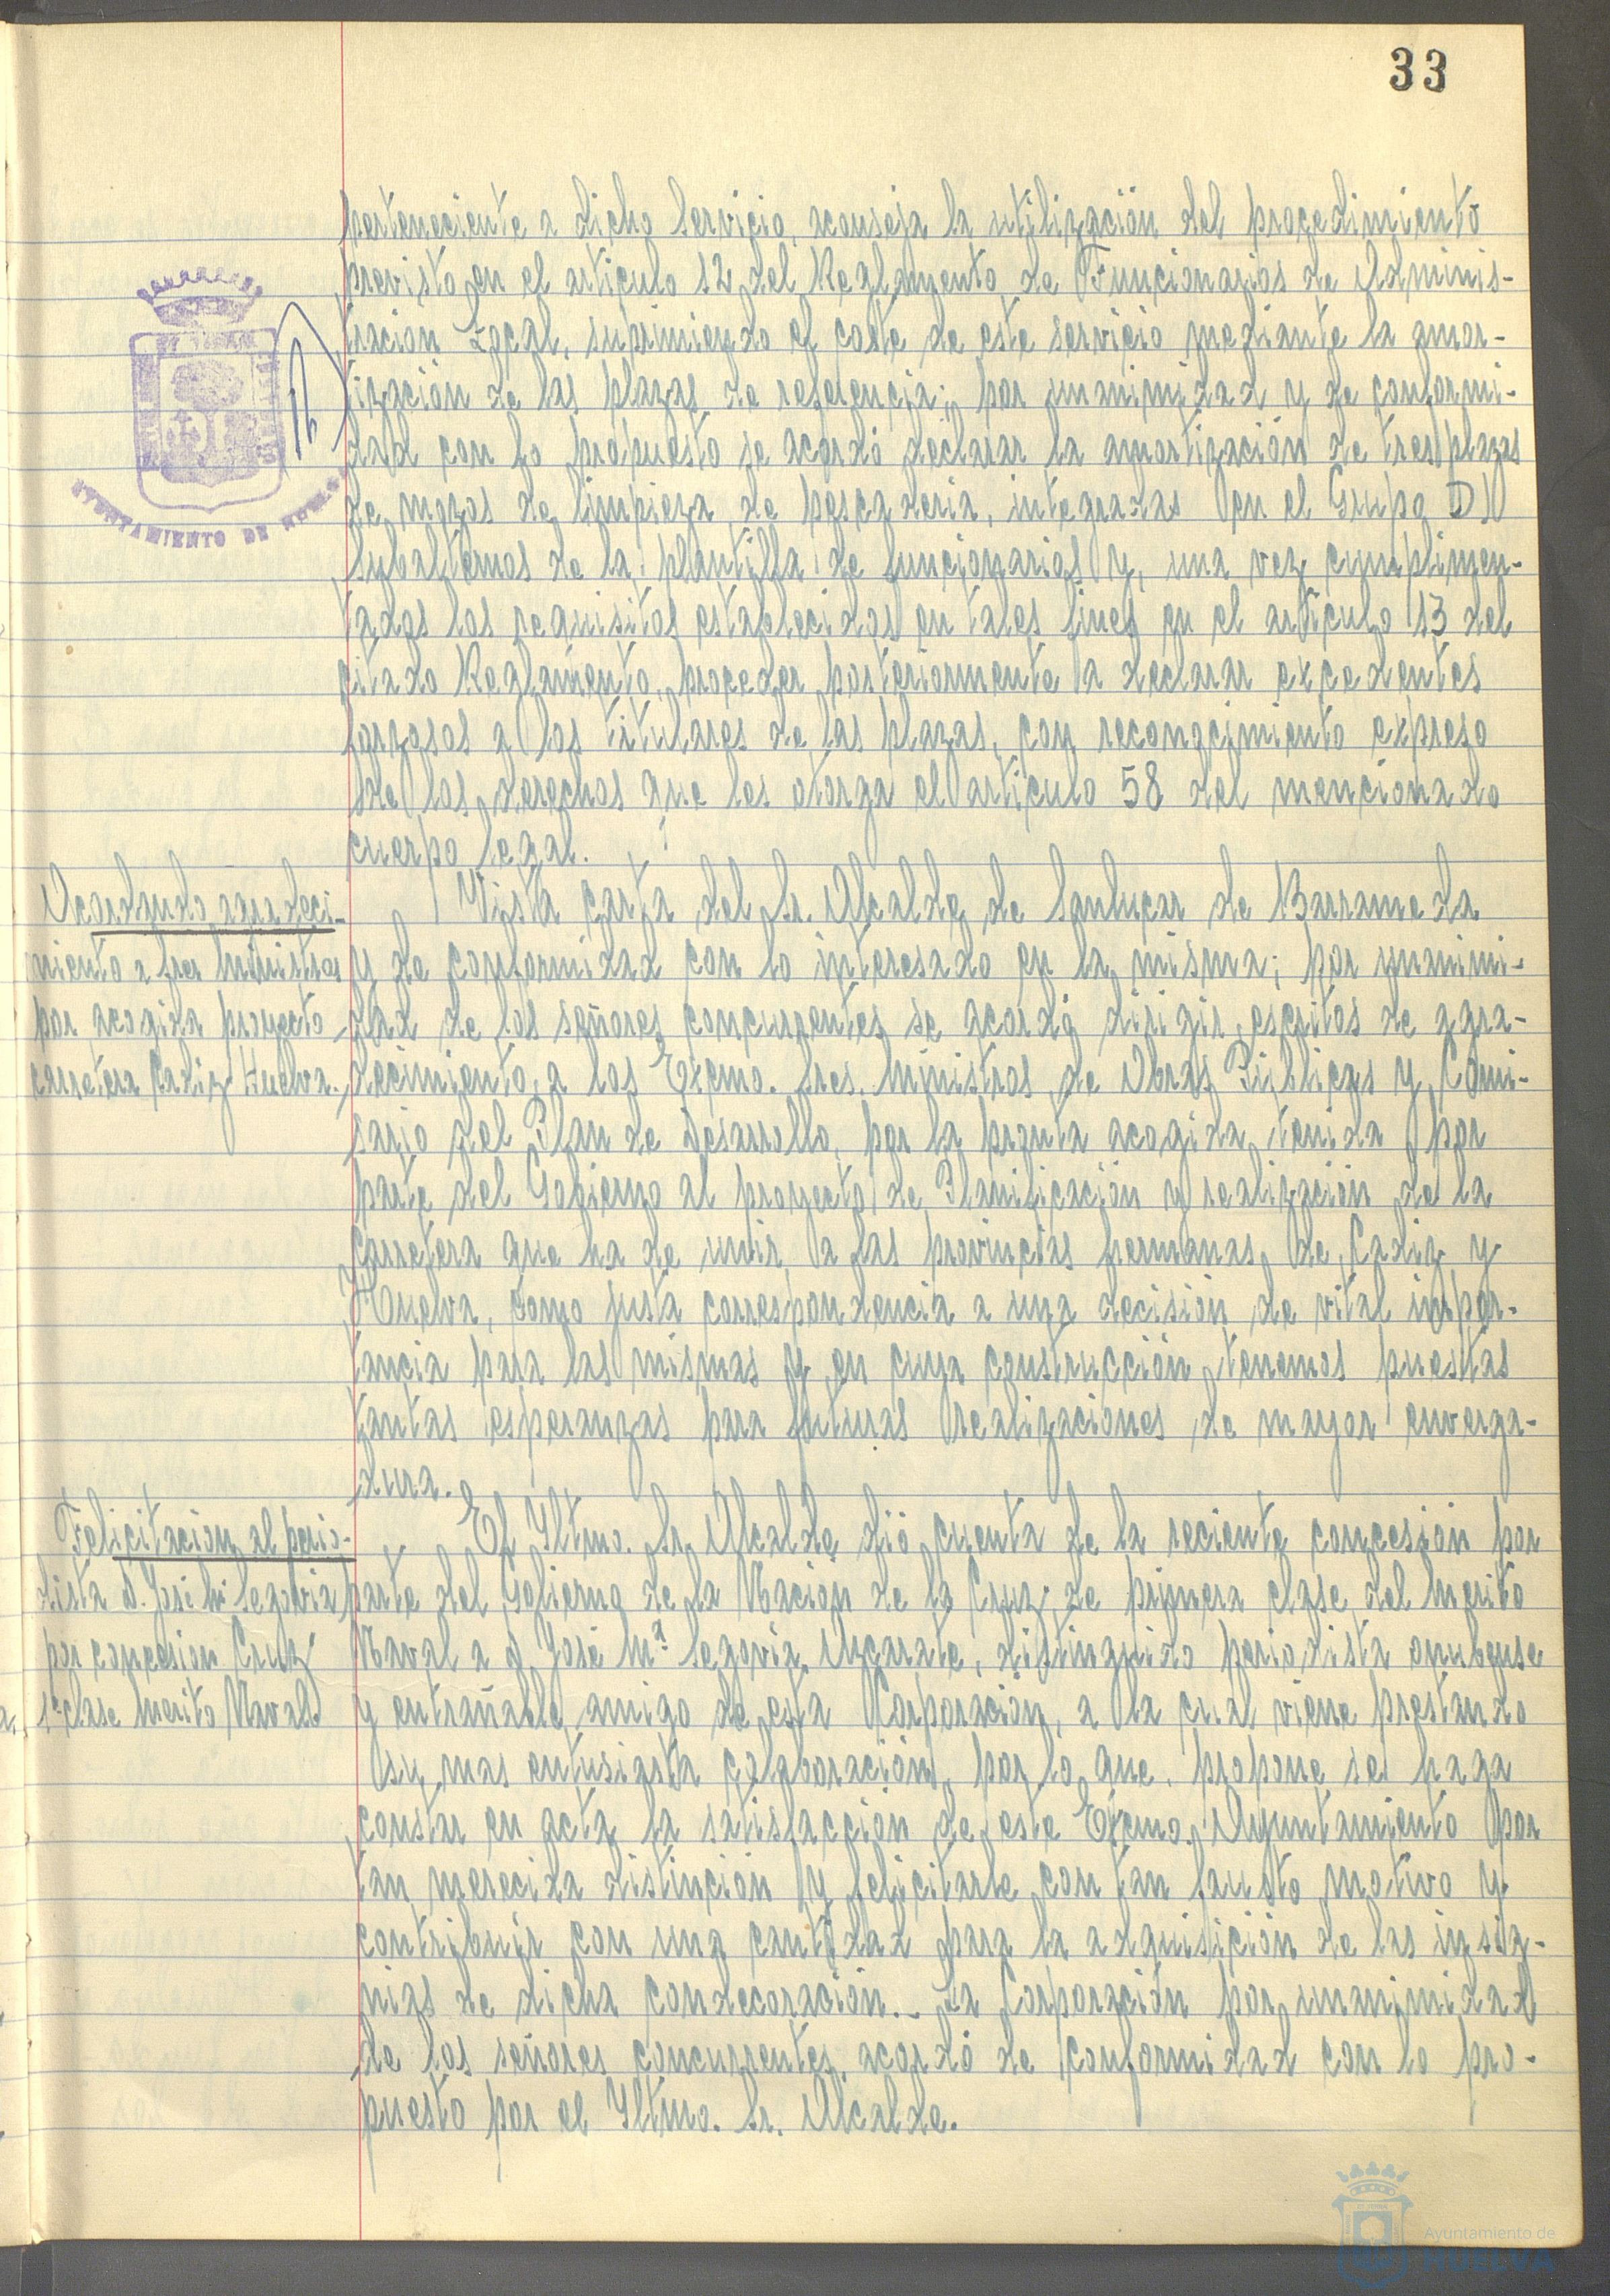 33
perteneciente a dicho servicio, aconseja la utilización del procedimiento
previsto en el articulo 12 del Reglamento de Funcionarios de Adminis-
tracion Local, suprimiendo el coste de este servicio mediante la amor-
tización de las plazas de referencia; por unanimidad y de conformi-
dad con lo propuesto se acordó declarar la amortización de tres plazas
de mozos de limpieza de pescaderia, integradas en el Grupo D)
Subalternos de la plantilla de funcionarios y, una vez cumplimen-
tados los requisitos establecidos en tales fines en el articulo 13 del
citado Reglamento, proceder posteriormente a declarar excedentes
forzosos a los titulares de las plazas, con reconocimiento expreso
de los derechos que les otorga el articulo 58 del mencionado
cuerpo legal.
AYUNTAMIENTO DE HUELVA
Acordando agradeci-
miento a Sres Ministros
por acogida proyecto
carretera Cadiz Huelva.
Vista carta del Sr. Alcalde de Sanlucar de Barrameda
y de conformidad con lo interesado en la misma; por unanimi-
dad de los señores concurrentes se acordó dirigir escritos de agra-
decimiento a los Excmo. Sres. Ministros de Obras Públicas y Comi-
sario del Plan de Desarrollo, por la pronta acogida tenida por
parte del Gobierno al proyecto de Planificación y realización de la
carretera que ha de unir a las provincias hermanas de Cadiz y
Huelva, como justa correspondencia a una decisión de vital impor-
tancia para las mismas y en cuya construcción tenemos puestas
tantas esperanzas para futuras realizaciones de mayor enverga-
dura.
Felicitacion al perio-
dista D. José Mª Segovia
por concesion Cruz
1ª clase Merito Naval.
El Iltmo. Sr. Alcalde dió cuenta de la reciente concesión por
parte del Gobierno de la Nación de la Cruz de primera clase del Merito
Naval a D. José Mª Segovia Azcarate, distinguido periodista onubense
y entrañable amigo de esta Corporación, a la cual viene prestando
su mas entusiasta colaboración, por lo que propone se haga
constar en acta la satisfacción de este Excmo. Ayuntamiento por
tan merecida distinción y felicitarle con tan fausto motivo y
contribuir con una cantidad para la adquisición de las insig-
nias de dicha condecoración.- La Corporación por unanimidad
de los señores concurrentes acordó de conformidad con lo pro-
puesto por el Iltmo. Sr. Alcalde.
Ayuntamiento de
HUELVA